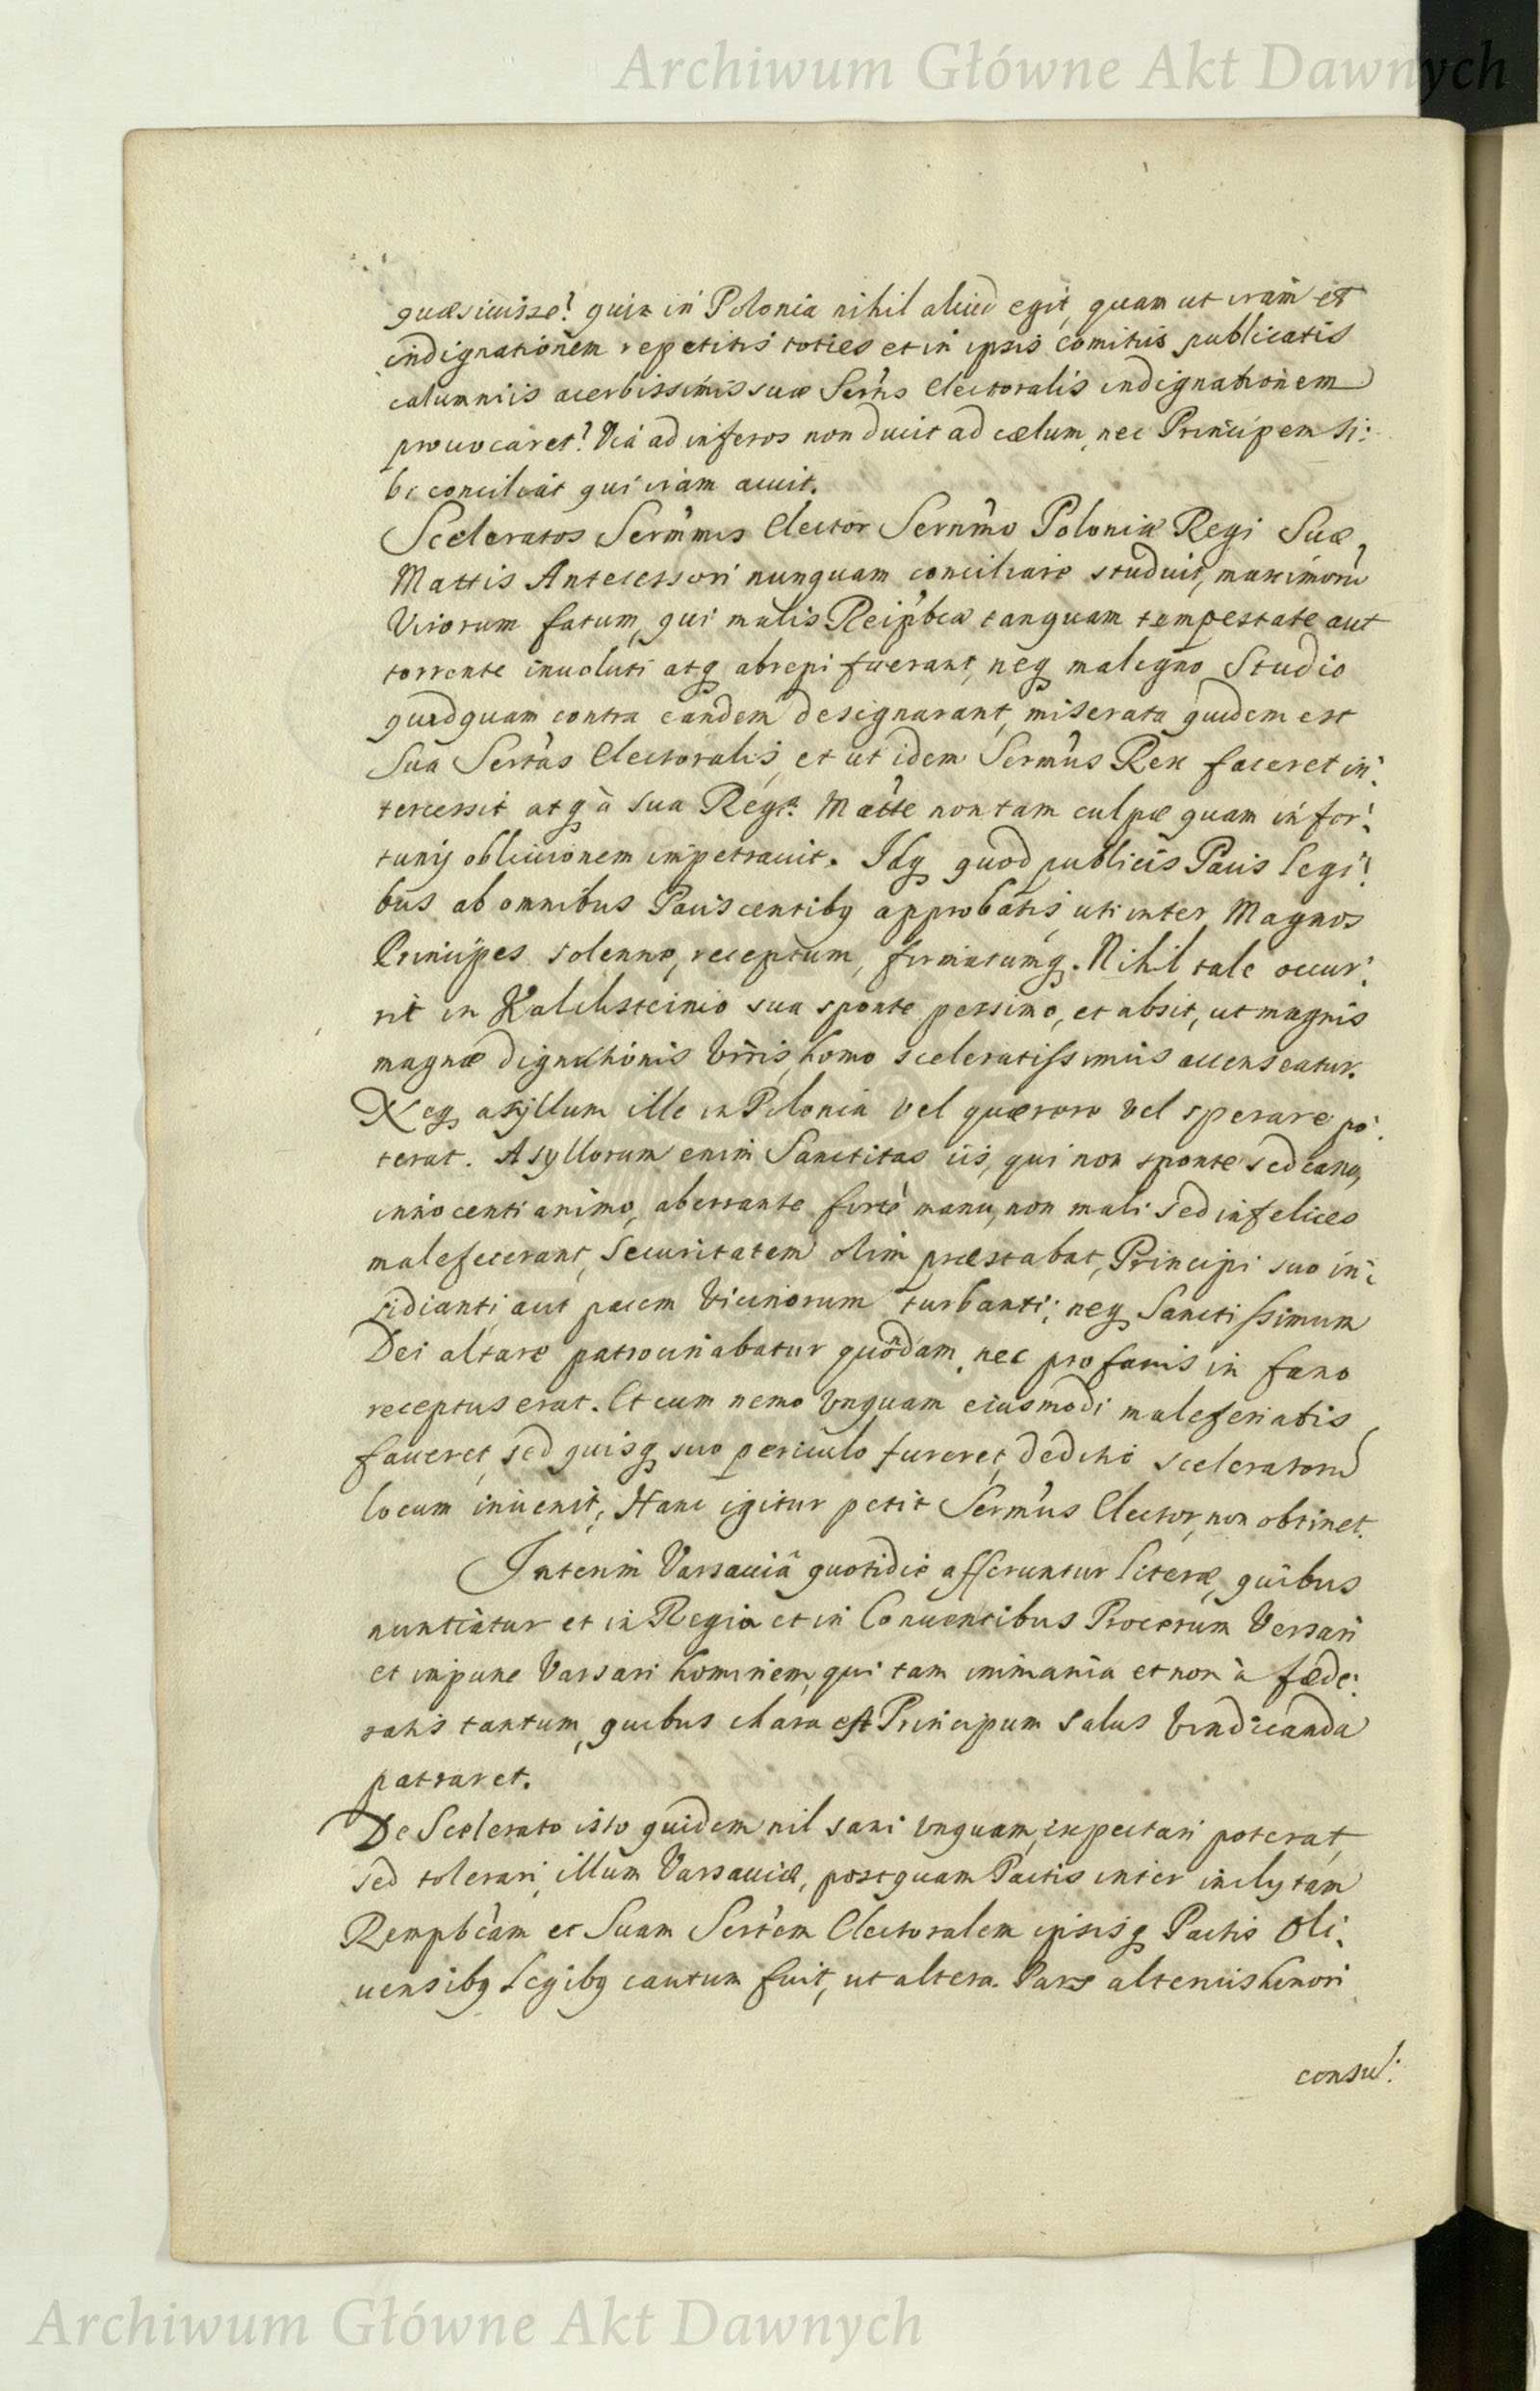 Archiwum Główne Akt Dawnych
quæsiuisse? quia in Polonia nihil aliud egit, quam ut iram et
indignationem repetitis toties et in ipsis comitiis publicatis
calumniis acerbissimis suæ Sertis Electoralis indignationem
prouocaret? Via ad inferos non ducit ad cælum, nec Principem si:
bi conciliat qui iram acuit.
Sceleratos Sermus Elector Sernmo Poloniæ Regi Suæ
Mattis Antecessori nunquam conciliare studuit, maximorũ
Virorum fatum, qui malis Reipbcæ tanquam tempestate aut
torrente inuoluti atq abrepi fuerant, neq maligno Studio
quidquam contra eandem designarant, miserata quidem est
Sua Sertas Electoralis, et ut idem Sermus Rex faceret in:
tercessit atq à sua Regª Matte non tam culpæ quam infor:
tunij obliuionem impetrauit. Idq quod publicis Pacis legi:
bus ab omnibus Paciscentibq approbatis, uti inter Magnos
Principes solenne, receptum, firmatumq. Nihil tale occur:
rit in Kalchsteinio sua sponte pessimo, et absit, ut magnis
magnæ dignationis Viris, homo sceleratissimus accenseatur.
Neq asyllum ille in Polonia vel quærere vel sperare po:
terat. Asyllorum enim Sanctitas iis, qui non sponte sed casu,
innocenti animo, aberrante forte manu, non mali sed infelices
malefecerant, Securitatem olim præstabat, Principi suo in:
sidianti, aut pacem Vicinorum turbanti; neq Sanctissimum
Dei altare patrocinabatur quondam, nec profanis in fano
receptus erat. Et cum nemo Vnquam eiusmodi maleferiatis
faueret, sed quisq suo periculo fureret, deditio sceleratorũ
locum inuenit, Hanc igitur petit Sermus Elector, non obtinet.
Interim Varsauiâ quotidie afferuntur literæ, quibus
nuntiatur et in Regia et in Conuentibus Procerum Versari
et impune Varsari hominem, qui tam immania et non à fæde:
ratis tantum, quibus chara est Principum Salus Vindicanda
patraret.
De Scelerato isto quidem nil sani vnquam expectari poterat,
sed tolerari illum Varsauiæ, postquam Pactis inter inclytam
Rempbcam et Suam Sertem Electoralem ipsisq Pactis Oli:
uensibq Legibq cautum fuit, ut altera Pars alterius honori
consul:
Archiwum Główne Akt Dawnych